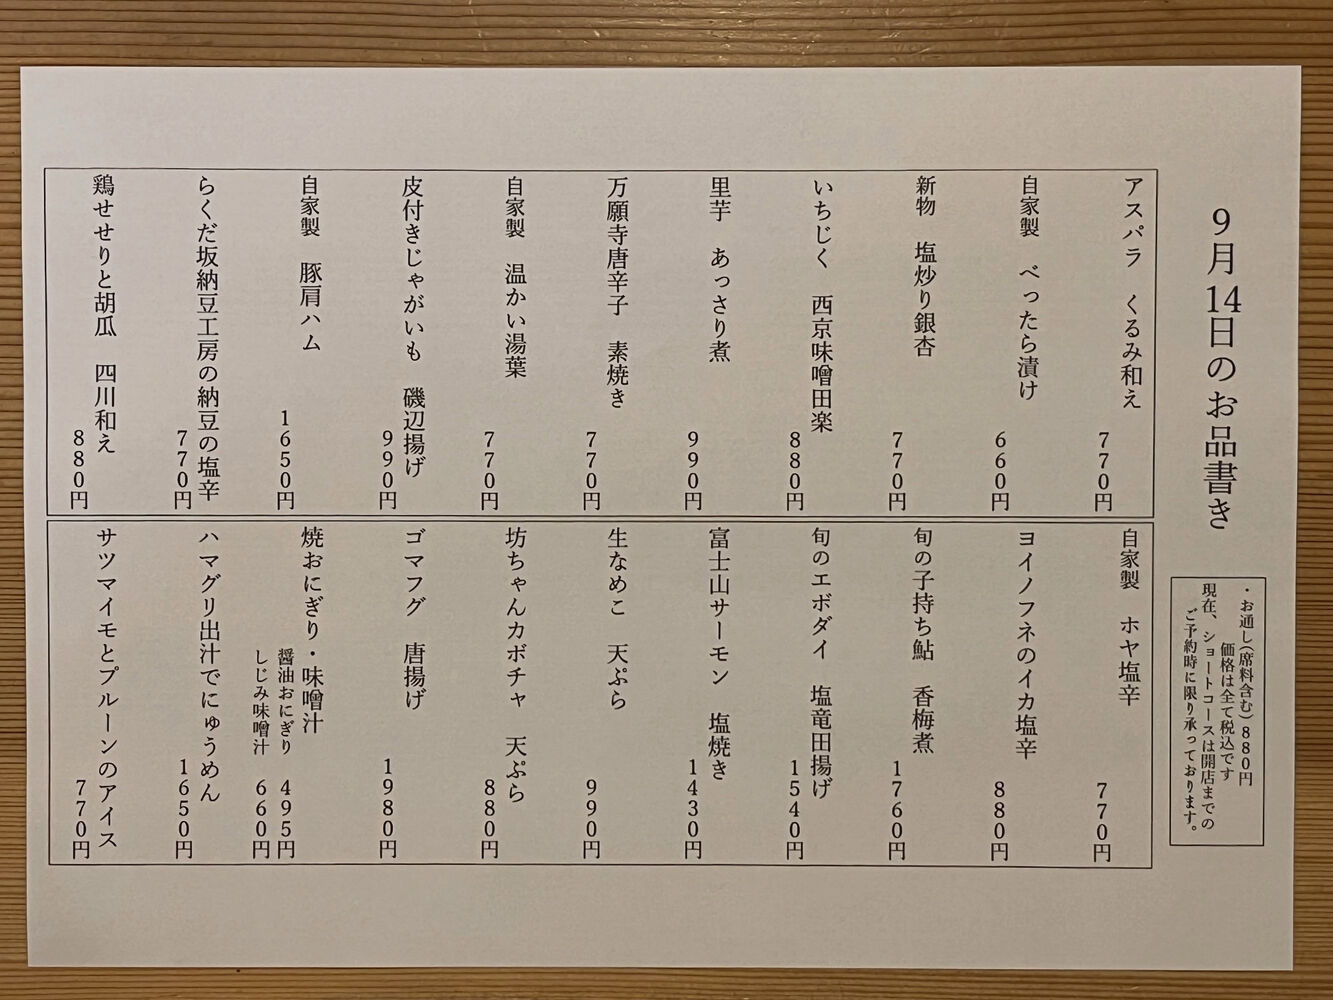 9月14日のお品書き
・お通し(席料含む)880円
価格は全て税込です
現在、ショートコースは開店までの
ご予約時に限り承っております。
アスパラ　くるみ和え
770円
自家製　べったら漬け
660円
新物　塩炒り銀杏
770円
いちじく　西京味噌田楽
880円
里芋　あっさり煮
990円
万願寺唐辛子　素焼き
770円
自家製　温かい湯葉
770円
皮付きじゃがいも　磯辺揚げ
990円
自家製　豚肩ハム
1650円
らくだ坂納豆工房の納豆の塩辛
770円
鶏せせりと胡瓜　四川和え
880円
自家製　ホヤ塩辛
770円
ヨイノフネのイカ塩辛
880円
旬の子持ち鮎　香梅煮
1760円
旬のエボダイ　塩竜田揚げ
1540円
富士山サーモン　塩焼き
1430円
生なめこ　天ぷら
990円
坊ちゃんカボチャ　天ぷら
880円
ゴマフグ　唐揚げ
1980円
焼おにぎり・味噌汁
醤油おにぎり　495円
しじみ味噌汁　660円
ハマグリ出汁でにゅうめん
1650円
サツマイモとプルーンのアイス
770円